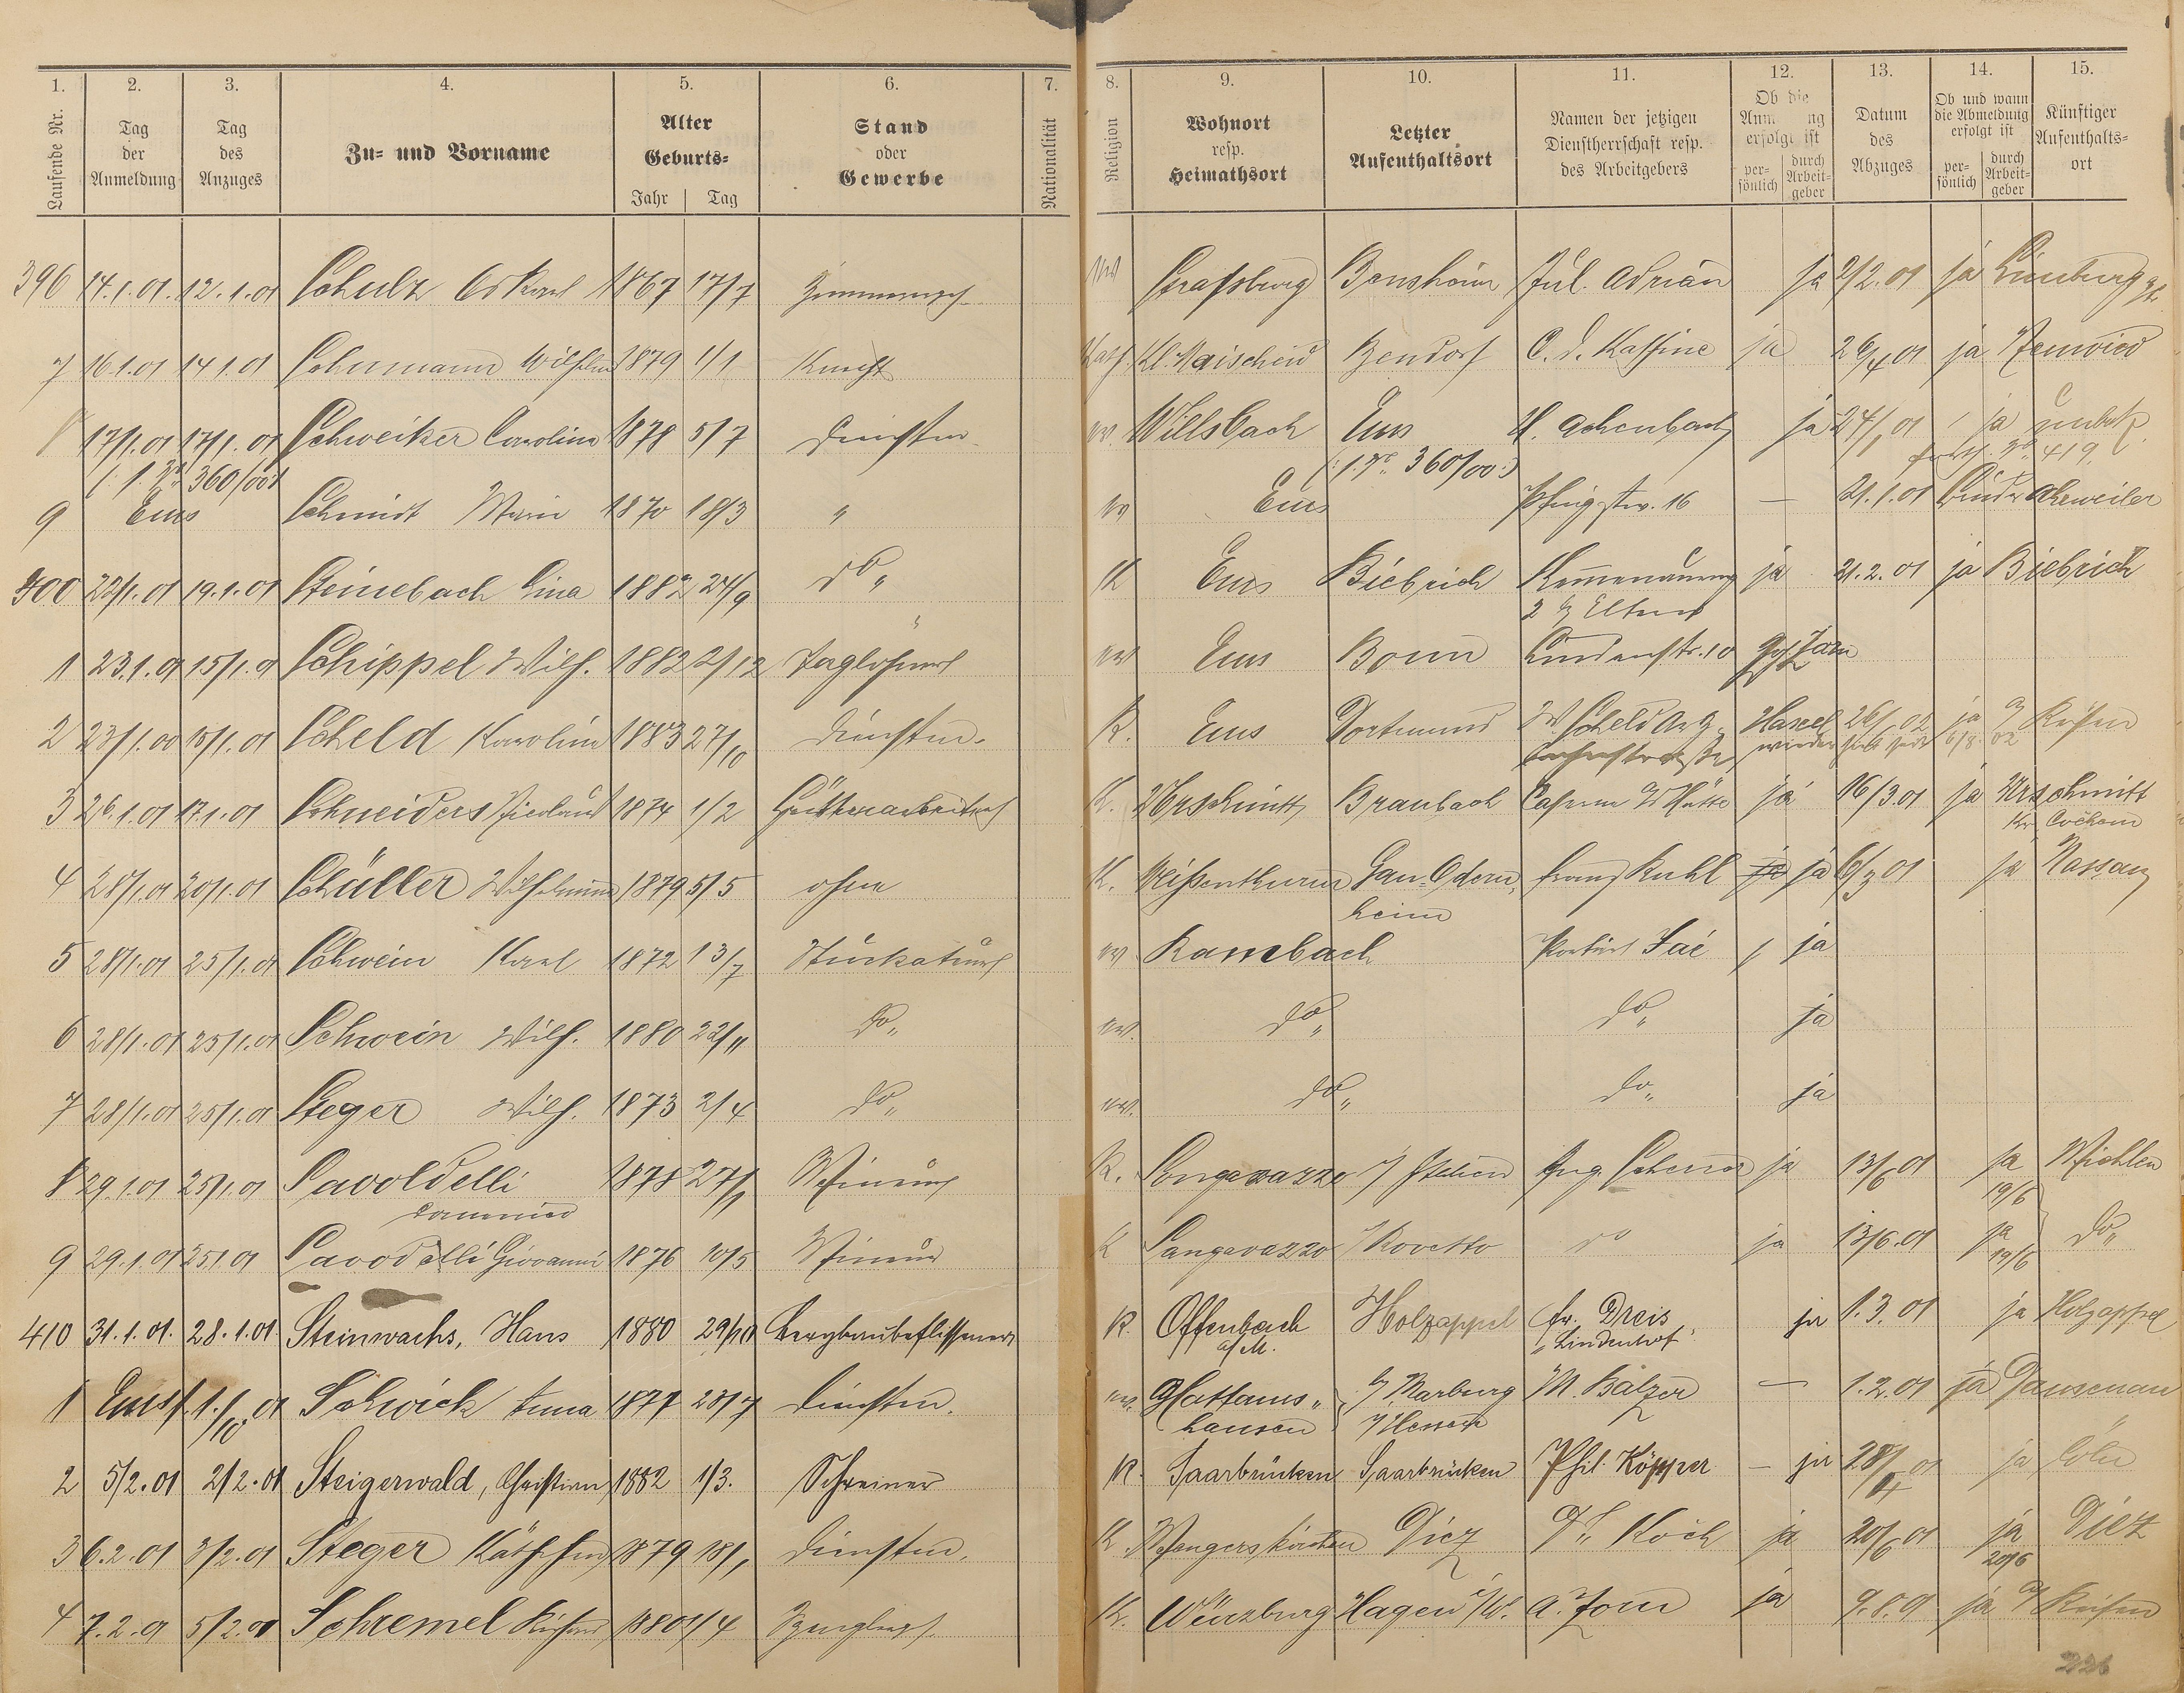 1. 2. 3. 4. 5. 6. 7. 8. 9. 10. 11. 12. 13. 14. 15.
Laufende Nr. Tag der Anmeldung Tag des Anzuges Zu- und Vorname Alter Geburts- Jahr Tag Stand oder Gewerbe Nationalität Religion Wohnort resp. Heimathsort Letzter Aufenthaltsort Namen der jetzigen Dienstherrschaft resp. des Arbeitgebers Ob die Anm ng erfolgt ist per- sönlich durch Arbeit- geber Datum des Abzuges Ob und wann die Abmeldung erfolgt ist per- sönlich durch Arbeit- geber Künftiger Aufenthalts- ort
396 14.1.01. 12.1.01 Schulz Oskar 1867 17/7 Strassburg Bensheim Jul. Adrian ja 2/2.01 ja Limburg
7 16.1.01 14.1.01 Schumann Wilhelm 1879 1/1 Knecht Kath. Kl. Maischeid Bendorf ja 26/4 01 ja Neuwied
8 17/1.01 17/1.01 Schweiker Carolina 1878 5/7 Dienstm. ev. Willsbach Ems H. Achenbach ja 24/1 01 ja unbek.
(: 1. No 360/00 :) (: 1. No 360/00 :) No 419.
9 Ems Schmidt Marie 1870 18/3 " ev Ems Pfingstw. 16 — 21.1.01 Ahrweiler
400 22/1.01 19.1.01 Steinebach Lina 1882 24/9 do " K Ems Biebrich ja 21.2.01 ja Biebrich
Eltern
1 23.1.01 15/1.01 Schippel Wilh. 1882 2/12 Taglöhner ev Ems Bonn Lindenstr. 10
2 23/1.00 15/1.01 Scheld Karolina 1883 27/10 Dienstm. K. Ems Dortmund W. Scheld ja
3 26.1.01 17.1.01 Schneiders 1874 1/2 Hüttenarbeiter K. Urschmitt Braubach ja 16/3.01 ja Urschmitt
Kr. Cochem
4 28/1.01 20/1.01 Schüller Wilhelmina 1879 5/5 ohne K. Weißenthurm Gau-Odern- Franz Kuhl ja ja 6/3 01 ja Nassau
heim
5 28/1.01 25/1.01 Schwein Karl 1872 13/7 Stuckateur ev Rambach ja
6 28/1.01 25/1.01 Schwein Wilh. 1880 22/11 do " ev. do " do " ja
7 28/1.01 25/1.01 Steger Wilh. 1873 2/4 do " ev. do " do " ja
8 29.1.01 25/1.01 Savoldelli 1878 27/1 Mineur K. Songavazzo Italien Aug. ja 13/6 01 ja Miehlen
Domenico 19/6
9 29.1.01 25.1.01 Savodelli Giovanni 1876 10/5 Mineur K Sangavazzo Rovetto do ja 13/6.01 ja do "
19/6
410 31.1.01. 28.1.01. Steinwachs, Hans 1880 29/10 Bergbaubeflissener K. Offenbach Holzappel Fr. Dreis ja 1.3.01 ja Holzappel
a/M. "Lindenhof"
1 Ems 1./10.01 Schwick Anna 1877 23/7 Dienstm. ev. Marburg M. Balzer — 1.2.01 ja Dausenau
hausen i/Hessen
2 5/2.01 2/2.01 Steigerwald, Christian 1882 1/3. Schreiner K. Saarbrücken Saarbrücken Phil. Köpper — ja 28/4 01 ja Cöln
3 6.2.01 3/2.01 Steger 1879 18/1 Dienstm. K. Diez Koch ja 20/6 01 ja Diez
20/6
4 7.2.01 5/2.01 Schremel Richard 1880 1/4 K. Würzburg Hagen i/W. A. Zorn ja 9.8.01 ja a/ Reisen
226